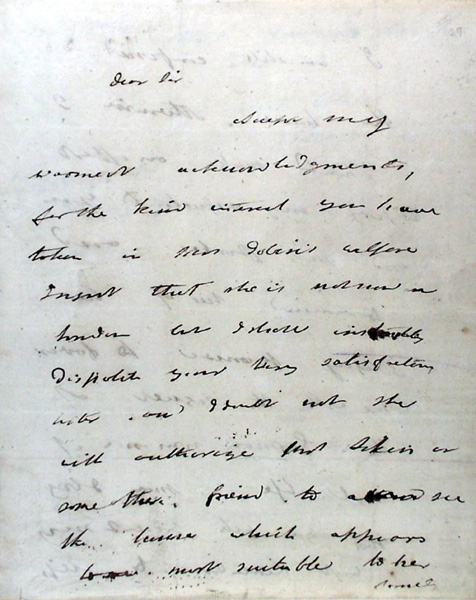 Dear Sir
Accept my
warmest acknowledgments,
for the kind interest you have
taken in Mrs welfare
I regret that she is not now in
London but I shall
Dispatch your very satisfactory
letter and I doubt not she
will authorize or
some other friend to see
the house which appears
most suitable to her